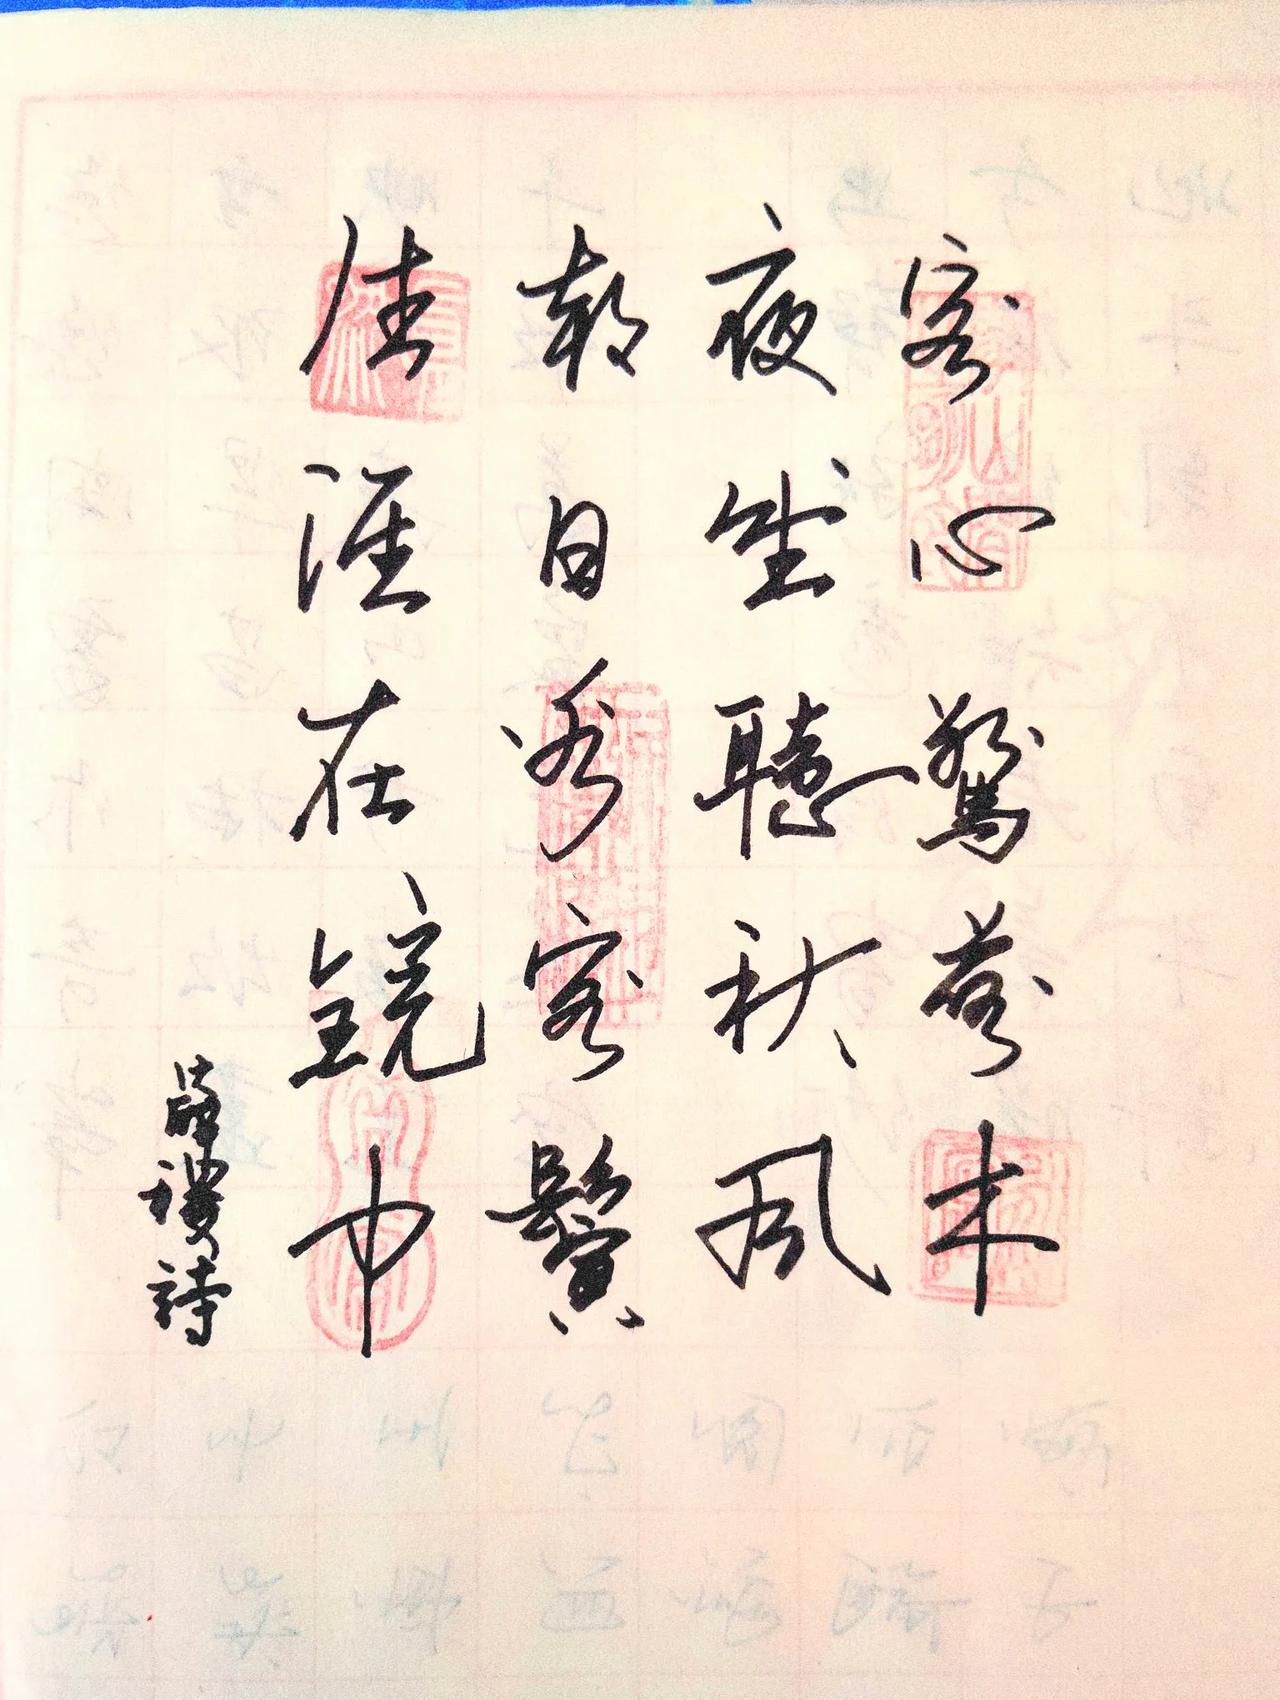 客心驚落木
夜坐聽秋風
朝日看容鬢
生涯在鏡中
薛稷詩